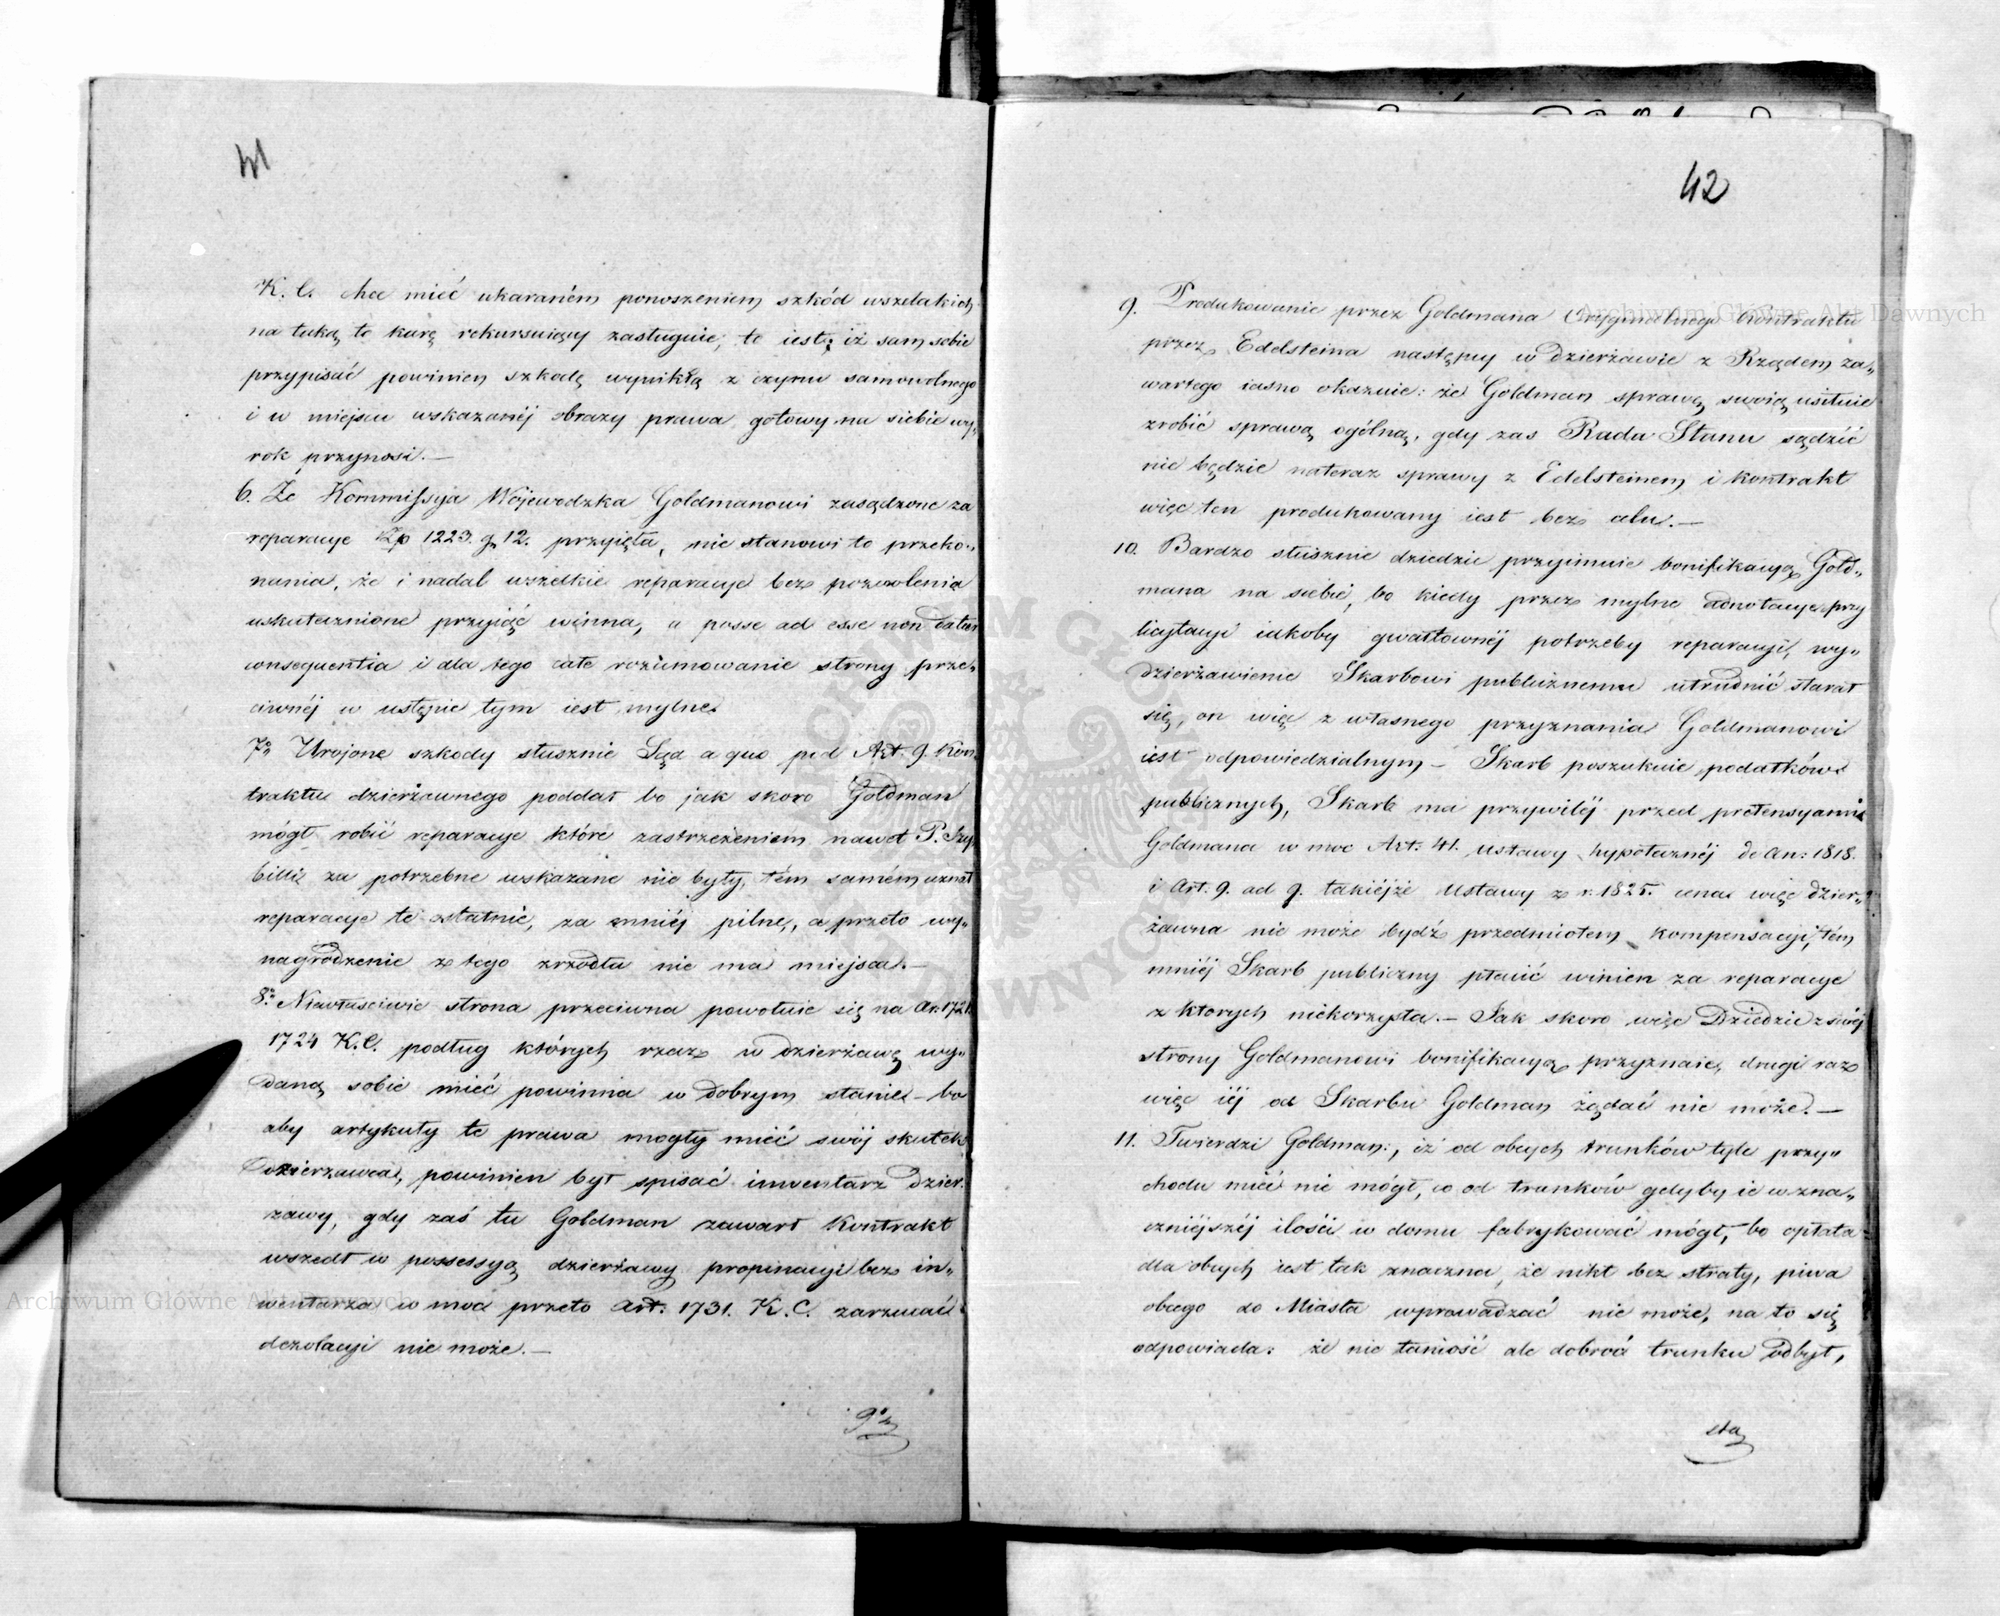 41
K. C. chce mieć ukaraném ponoszeniem szkód wszelakich
na taką to karę rekursuiący zasługuie, to iest; iż sam sobie
przypisać powinien szkodę wynikłą z czynu samowolnego
i w miejscu wskazanéj obrazy prawa gotowy na siebie wy„
rok przynosi. —
6. Że Kommissya Wojewodzka Goldmanowi zasądzone za
reparacye Zp 1223. g. 12. przyięła, nie stanowi to przeko„
nania, że i nadal wszelkie reparacye bez pozwolenia
uskutecznione przyiąć winna, a posse ad esse non datur
consequentia i dla tego całe rozumowanie strony prze„
ciwnéj w ustępie tym iest mylne.
7o Urojone szkody słusznie Sąd a quo pod Art. 9. Kon„
traktu dzierżawnego poddał bo jak skoro Goldman
mógł robić reparacye które zastrzeżeniem nawet P. Szy
billi za potrzebne wskazane nie były, tém samém uznał
reparacye te ostatnie, za mniéj pilne, a przeto wy„
nagrodzenie z tego zrzódła nie ma miejsca. —
8o Niewłaściwie strona przeciwna powołuie się na Ar. 1721.
1724 K.C. podług których rzecz w dzierżawę wy„
daną sobie mieć powinna w dobrym stanie — bo
aby artykuły te prawa mogły mieć swój skutek
dzierzawca, powinien był spisać inwentarz dzier„
zawy, gdy zaś tu Goldman zawarł Kontrakt
wszedł w possessyą dzierżawy propinacyi bez in„
wentarza w moc przeto Art. 1731. K. C. zarzucać
dezolacyi nie może. —
9o
42
9. Produkowanie przez Goldmana Oryginalnego Kontraktu
przez Edelsteina następcy w dzierżawie z Rządem za„
wartego iasno okazuie: że Goldman sprawę swoią usiłuie
zrobić sprawą ogólną, gdy zas Rada Stanu sądzić
nie będzie nateraz sprawy z Edelsteinem i kontrakt
więc ten produkowany iest bez celu. —
10. Bardzo słusznie dziedzic przyimuie bonifikacyą Gold„
mana na siebie, bo kiedy przez mylne adnotacye przy
licytacyi iakoby gwałtownéj potrzeby reparacyi, wy„
dzierżawienie Skarbowi publicznemu utrudnić starał
się, on więc z własnego przyznania Goldmanowi
iest odpowiedzialnym — Skarb poszukuie podatków
publicznych, Skarb ma przywiléj przed pretensyami
Goldmana w moc Art: 41. ustawy hypotecznéj de An: 1818.
i Art. 9. ad g. takiéjże Ustawy z r. 1825. cena więc dzier„
żawna nie może bydź przedmiotem kompensacyi, tém
mniéj Skarb publiczny płacić winien za reparacye
z ktorych niekorzysta. — Jak skoro więc Dziedzic z swéj
strony Goldmanowi bonifikacyą przyznaie, drugi raz
więc iéj od Skarbu Goldman żądać nie może. —
11. Twierdzi Goldman:, iż od obcych trunków tyle przy„
chodu mieć nie mógł, co od trunków gdyby ie w zna„
czniéjszéj ilości w domu fabrykować mógł, bo opłata
dla obcych iest tak znaczna, że nikt bez straty, piwa
obcego do Miasta wprowadzać nie może, na to się
odpowiada: że nie taniość ale dobroć trunku odbyt,
sta
Archiwum Główne Akt Dawnych
Archiwum Główne Akt Dawnych
ARCHIWUM GŁÓWNE AKT DAWNYCH